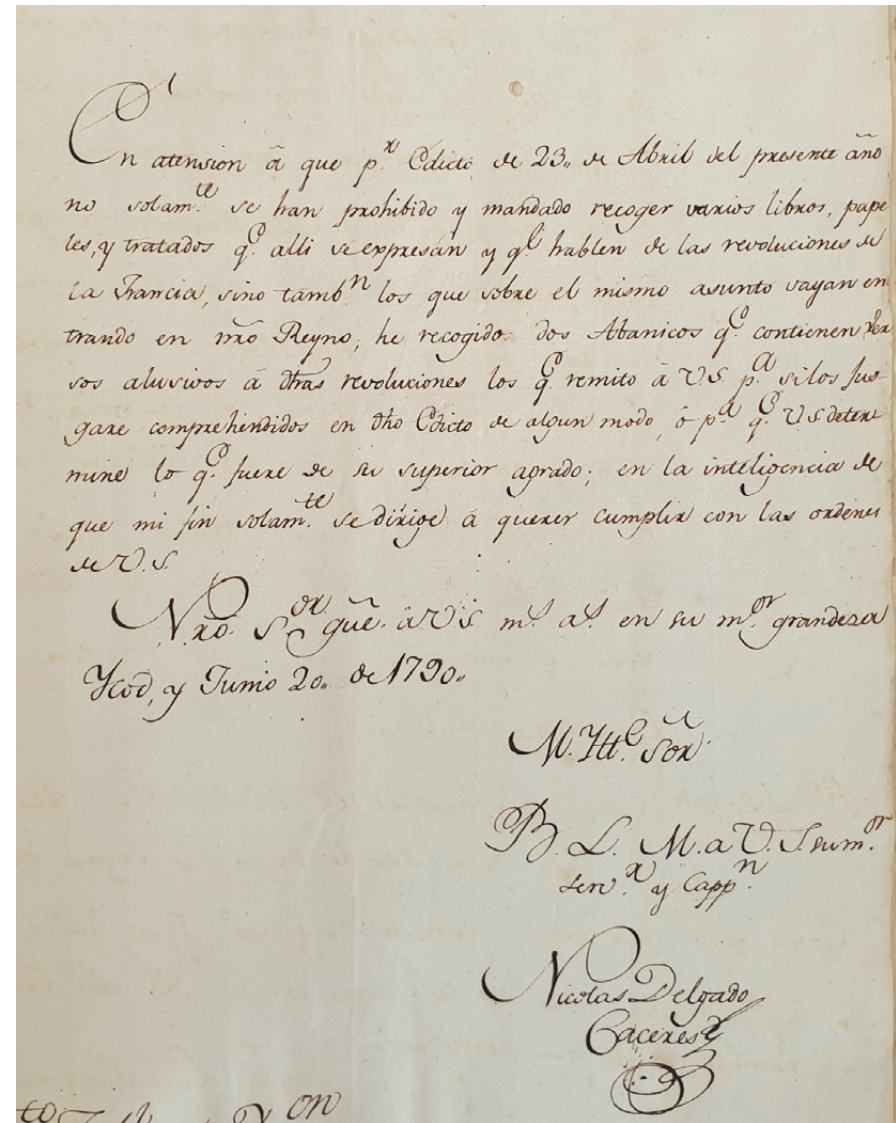 En atension â que p.r Edicto de 23,, de Abril del presente año
no solam.te se han prohibido y mandado recoger varios libros, pape
les, y tratados q.e alli se expresan y q.e hablen de las revoluciones de
la Francia, sino tamb.n los que sobre el mismo asunto vayan en
trando en nro Reyno; he recogido dos Abanicos q.e contienen Ver
sos alusivos á dhas revoluciones los q.e remito á V.S. p.a si los jus
gare comprehendidos en dho Edicto de algun modo, ó p.a q.e V.S. deter
mine lo q.e fuere de su superior agrado; en la inteligencia de
que mi fin solam.te se dirige á querer cumplir con las ordenes
de V.S.
Nro. S.or gue. â V.S. m.s a.s en su m.or grandesa
Ycod, y Junio 20,, de 1790,,
M. Iltt.e Sor.
B. L. M. a V. S. su m.or
serv.r y Capp.n
Nicolas Delgado
Caceres